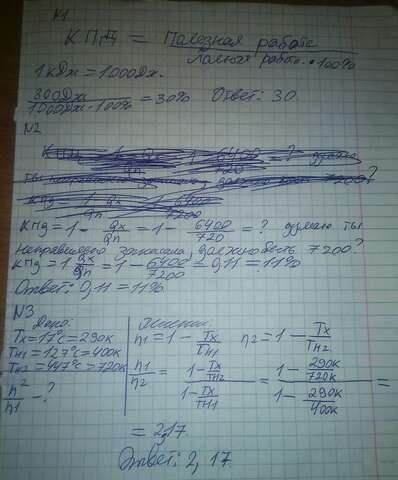 N1
КПД = Полезная работа
Полная работа · 100%
1кДж = 1000Дж.
300Дж
1000Дж · 100% = 30% Ответ: 30.
N2
КПД = 1 - Qx/Qn = 1 - 6400/720 = ? думаю ты
неправильно записала, должно быть 7200?
КПД = 1 Qx/Qn = 1 - 6400/7200 = 0,11 = 11%
Ответ: 0,11 = 11%
N3
Дано:
Tx = 17°C = 290K
TH1 = 127°C = 400K
TH2 = 447°C = 720K
n2/n1 - ?
Решение:
n1 = 1 - Tx/TH1 n2 = 1 - Tx/TH2
n1/n2 = (1 - Tx/TH2)/(1 - Tx/TH1) = (1 - 290K/720K)/(1 - 290K/400K) =
= 2,17.
Ответ: 2,17